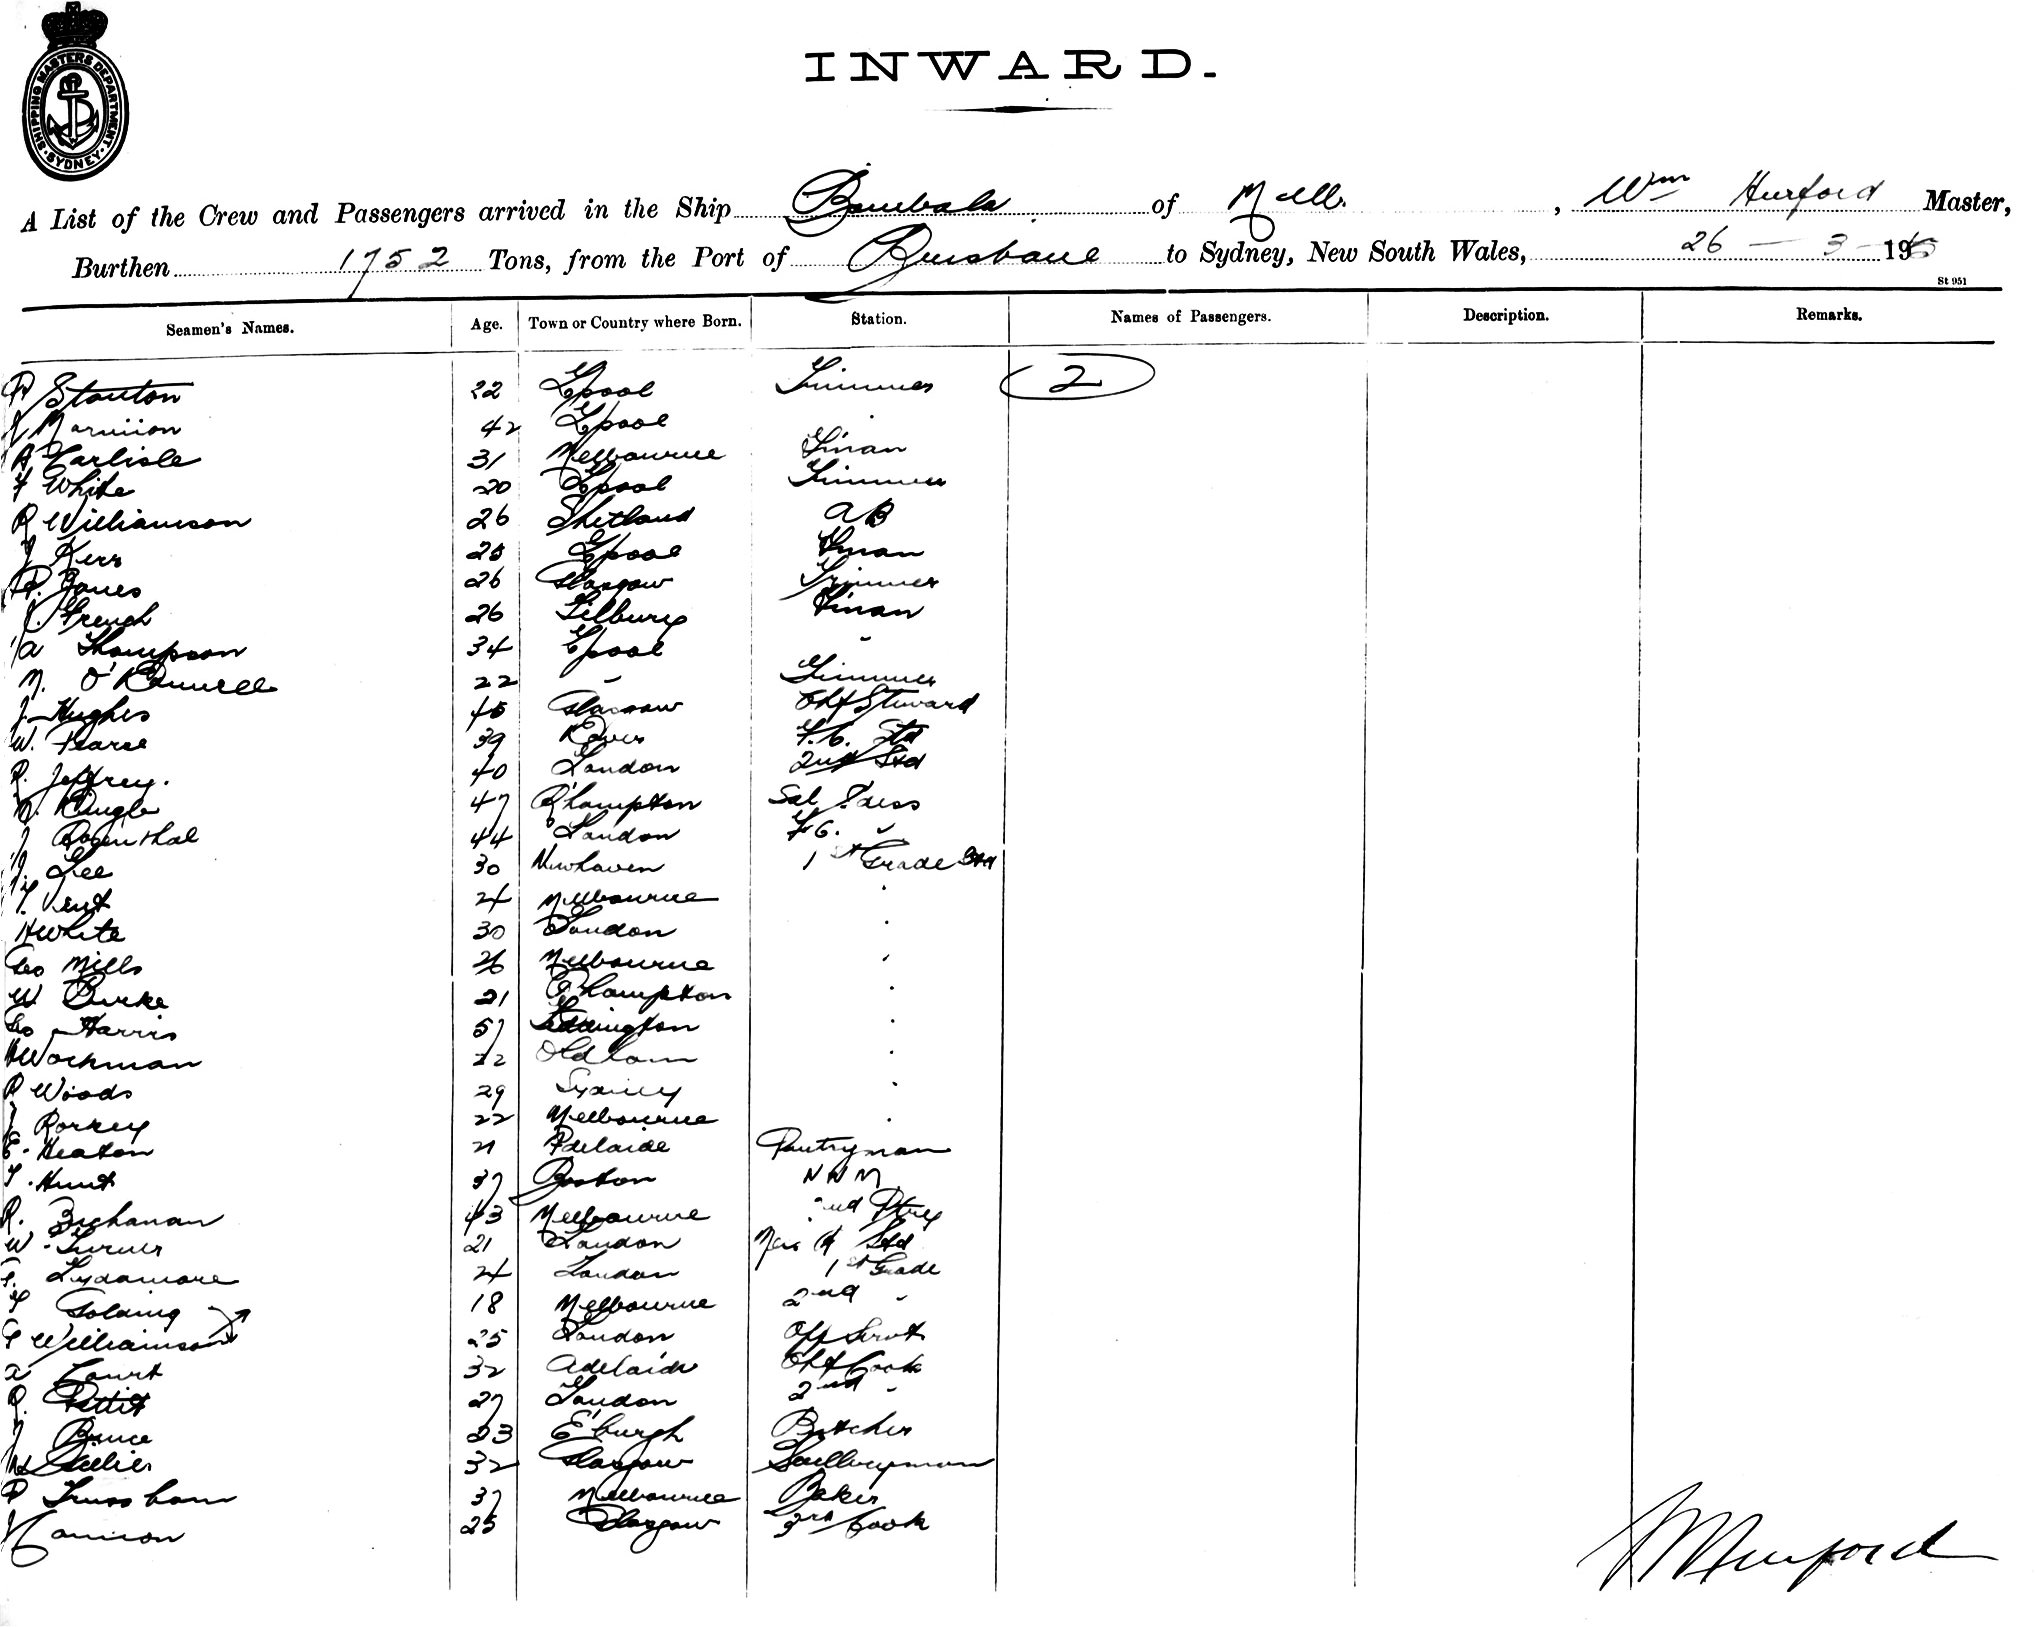 SHIPPING MASTERS DEPARTMENT · SYDNEY ·
INWARD.
A List of the Crew and Passengers arrived in the Ship Bombala of Melb. , Wm Hurford Master,
Burthen 1752 Tons, from the Port of Brisbane to Sydney, New South Wales, 26 - 3 - 19
St 951
Seamen's Names. Age. Town or Country where Born. Station. Names of Passengers. Description. Remarks.
Stanton 22 L'pool Trimmer 2
Marmion 42 L'pool "
A Carlisle 31 Melbourne F'man
F White 20 L'pool Trimmer
R Williamson 26 Shetland AB
J Kerr 25 L'pool F'man
R. Jones 26 Glasgow Trimmer
J. French 26 Tilbury F'man
A Thompson 34 L'pool "
M. O'Connell 22 " Trimmer
J. Hughes 45 Glasgow Chf Steward
W. Pearse 39 F.C. Std
R. Jeffrey. 40 London 2nd Std
47 R'hampton Sal
J Rosenthal 44 London F.C. "
J. Lee 30 Newhaven 1st Grade Std
T. Vent 24 Melbourne "
H White 30 London "
Geo Mills 26 Melbourne "
W Burke 21 "
Geo Harris 57 "
H Workman 22 Oldham "
R Woods 29 Sydney "
J Rorkey 22 Melbourne "
E. Heaton 21 Adelaide Pantryman
T. Hunt 37 Boston
R. Buchanan 43 Melbourne 2nd Ptry
W. Turner 21 London Std
Lydamore 24 London 1st Grade
F Golding 18 Melbourne 2nd "
G Williamson 25 London Off Servt
A Court 32 Adelaide Chf Cook
R. Pettit 27 London 2nd "
J Bruce 23 E'burgh Butcher
32 Glasgow Sculleryman
P Trussham 37 Melbourne Baker
J Cannon 25 Glasgow 3rd Cook
WM Hurford